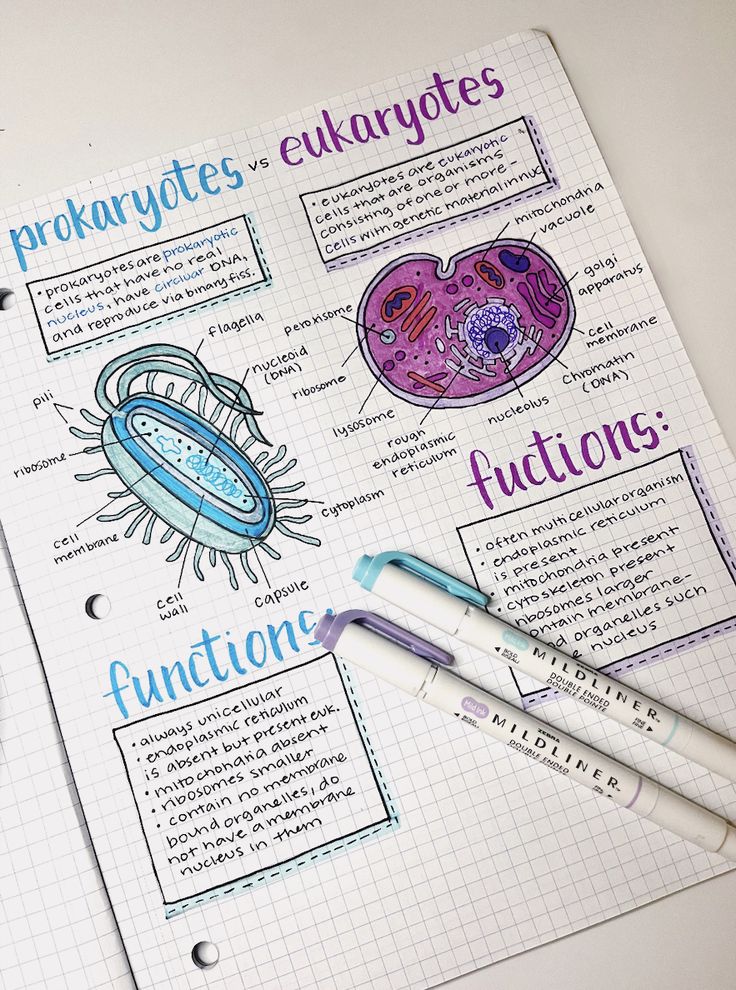 prokaryotes vs eukaryotes
• prokaryotes are prokaryotic
cells that have no real
nucleus, have circluar DNA,
and reproduce via binary fiss.
• eukaryotes are eukaryotic
cells that are organisms
consisting of one or more -
cells with genetic material in nuc
pili
flagella
nucleoid
(DNA)
ribosome
cell
membrane
cell
wall
capsule
cytoplasm
mitochondria
vacuole
golgi
apparatus
cell
membrane
chromatin
(DNA)
nucleolus
rough
endoplasmic
reticulum
lysosome
ribosome
peroxisome
functions:
• always unicellular
• endoplasmic reticulum
is absent but present euk.
• mitochondria absent
• ribosomes smaller
• contain no membrane
bound organelles, do
not have a membrane
nucleus in them
fuctions:
• often multicellular organism
• endoplasmic reticulum
is present
• mitochondria present
• cytoskeleton present
ribosomes larger
contain membrane-
organelles such
nucleus
MILDLINER
DOUBLE ENDED
DOUBLE POINTE
BOLD
FINE
ZEBRA
Mild Ink
MILDLINER
DOUBLE ENDED
BOLD